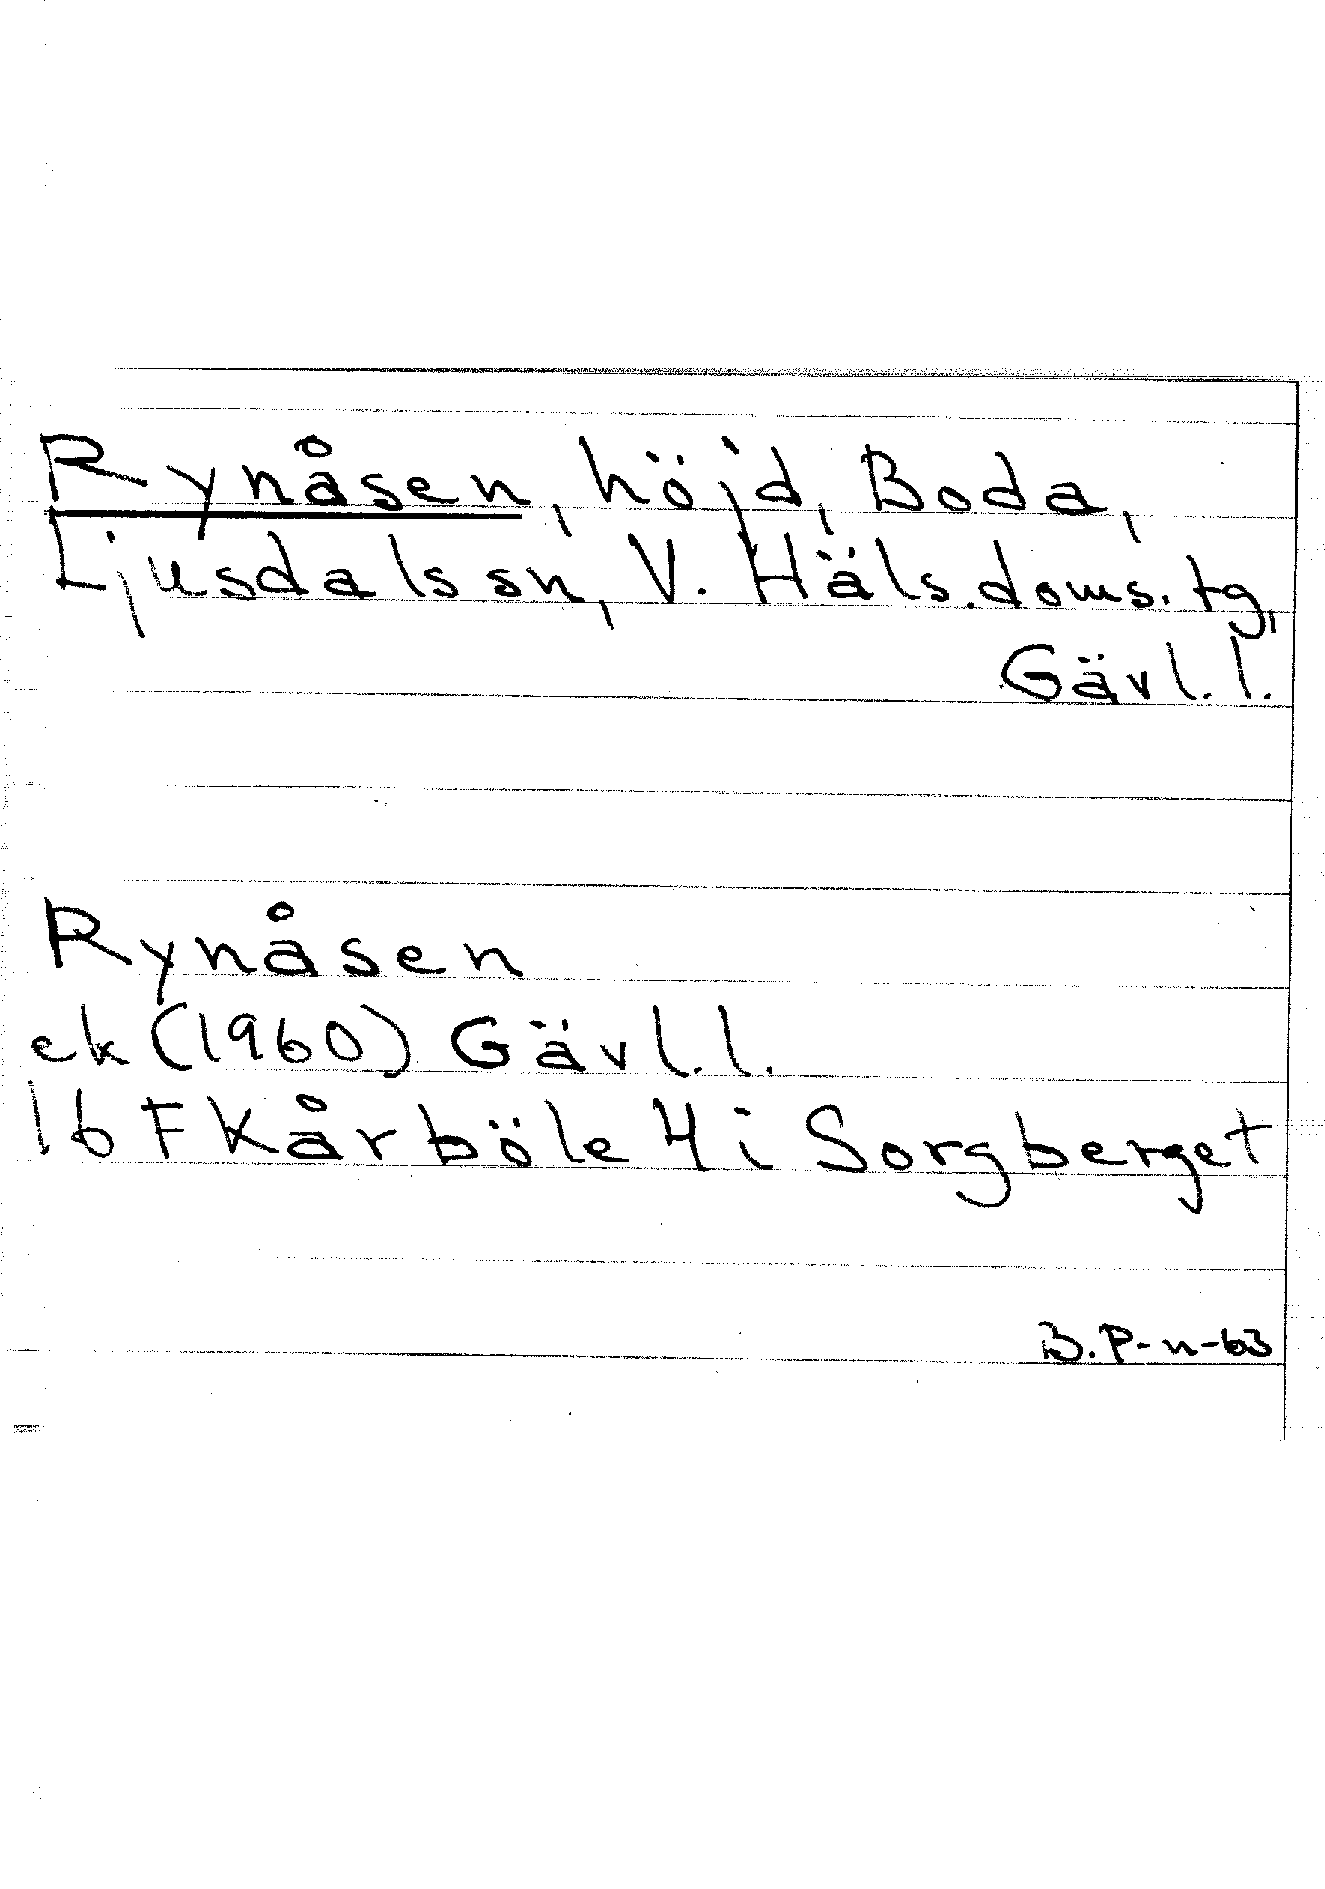 Rynåsen, höjd, Boda,
Ljusdals sn, V. Häls. doms. tg,
Gävl. l.
Rynåsen
ek (1960) Gävl. l.
16 F Kårböle 4 i Sorgberget
B.P-n-63